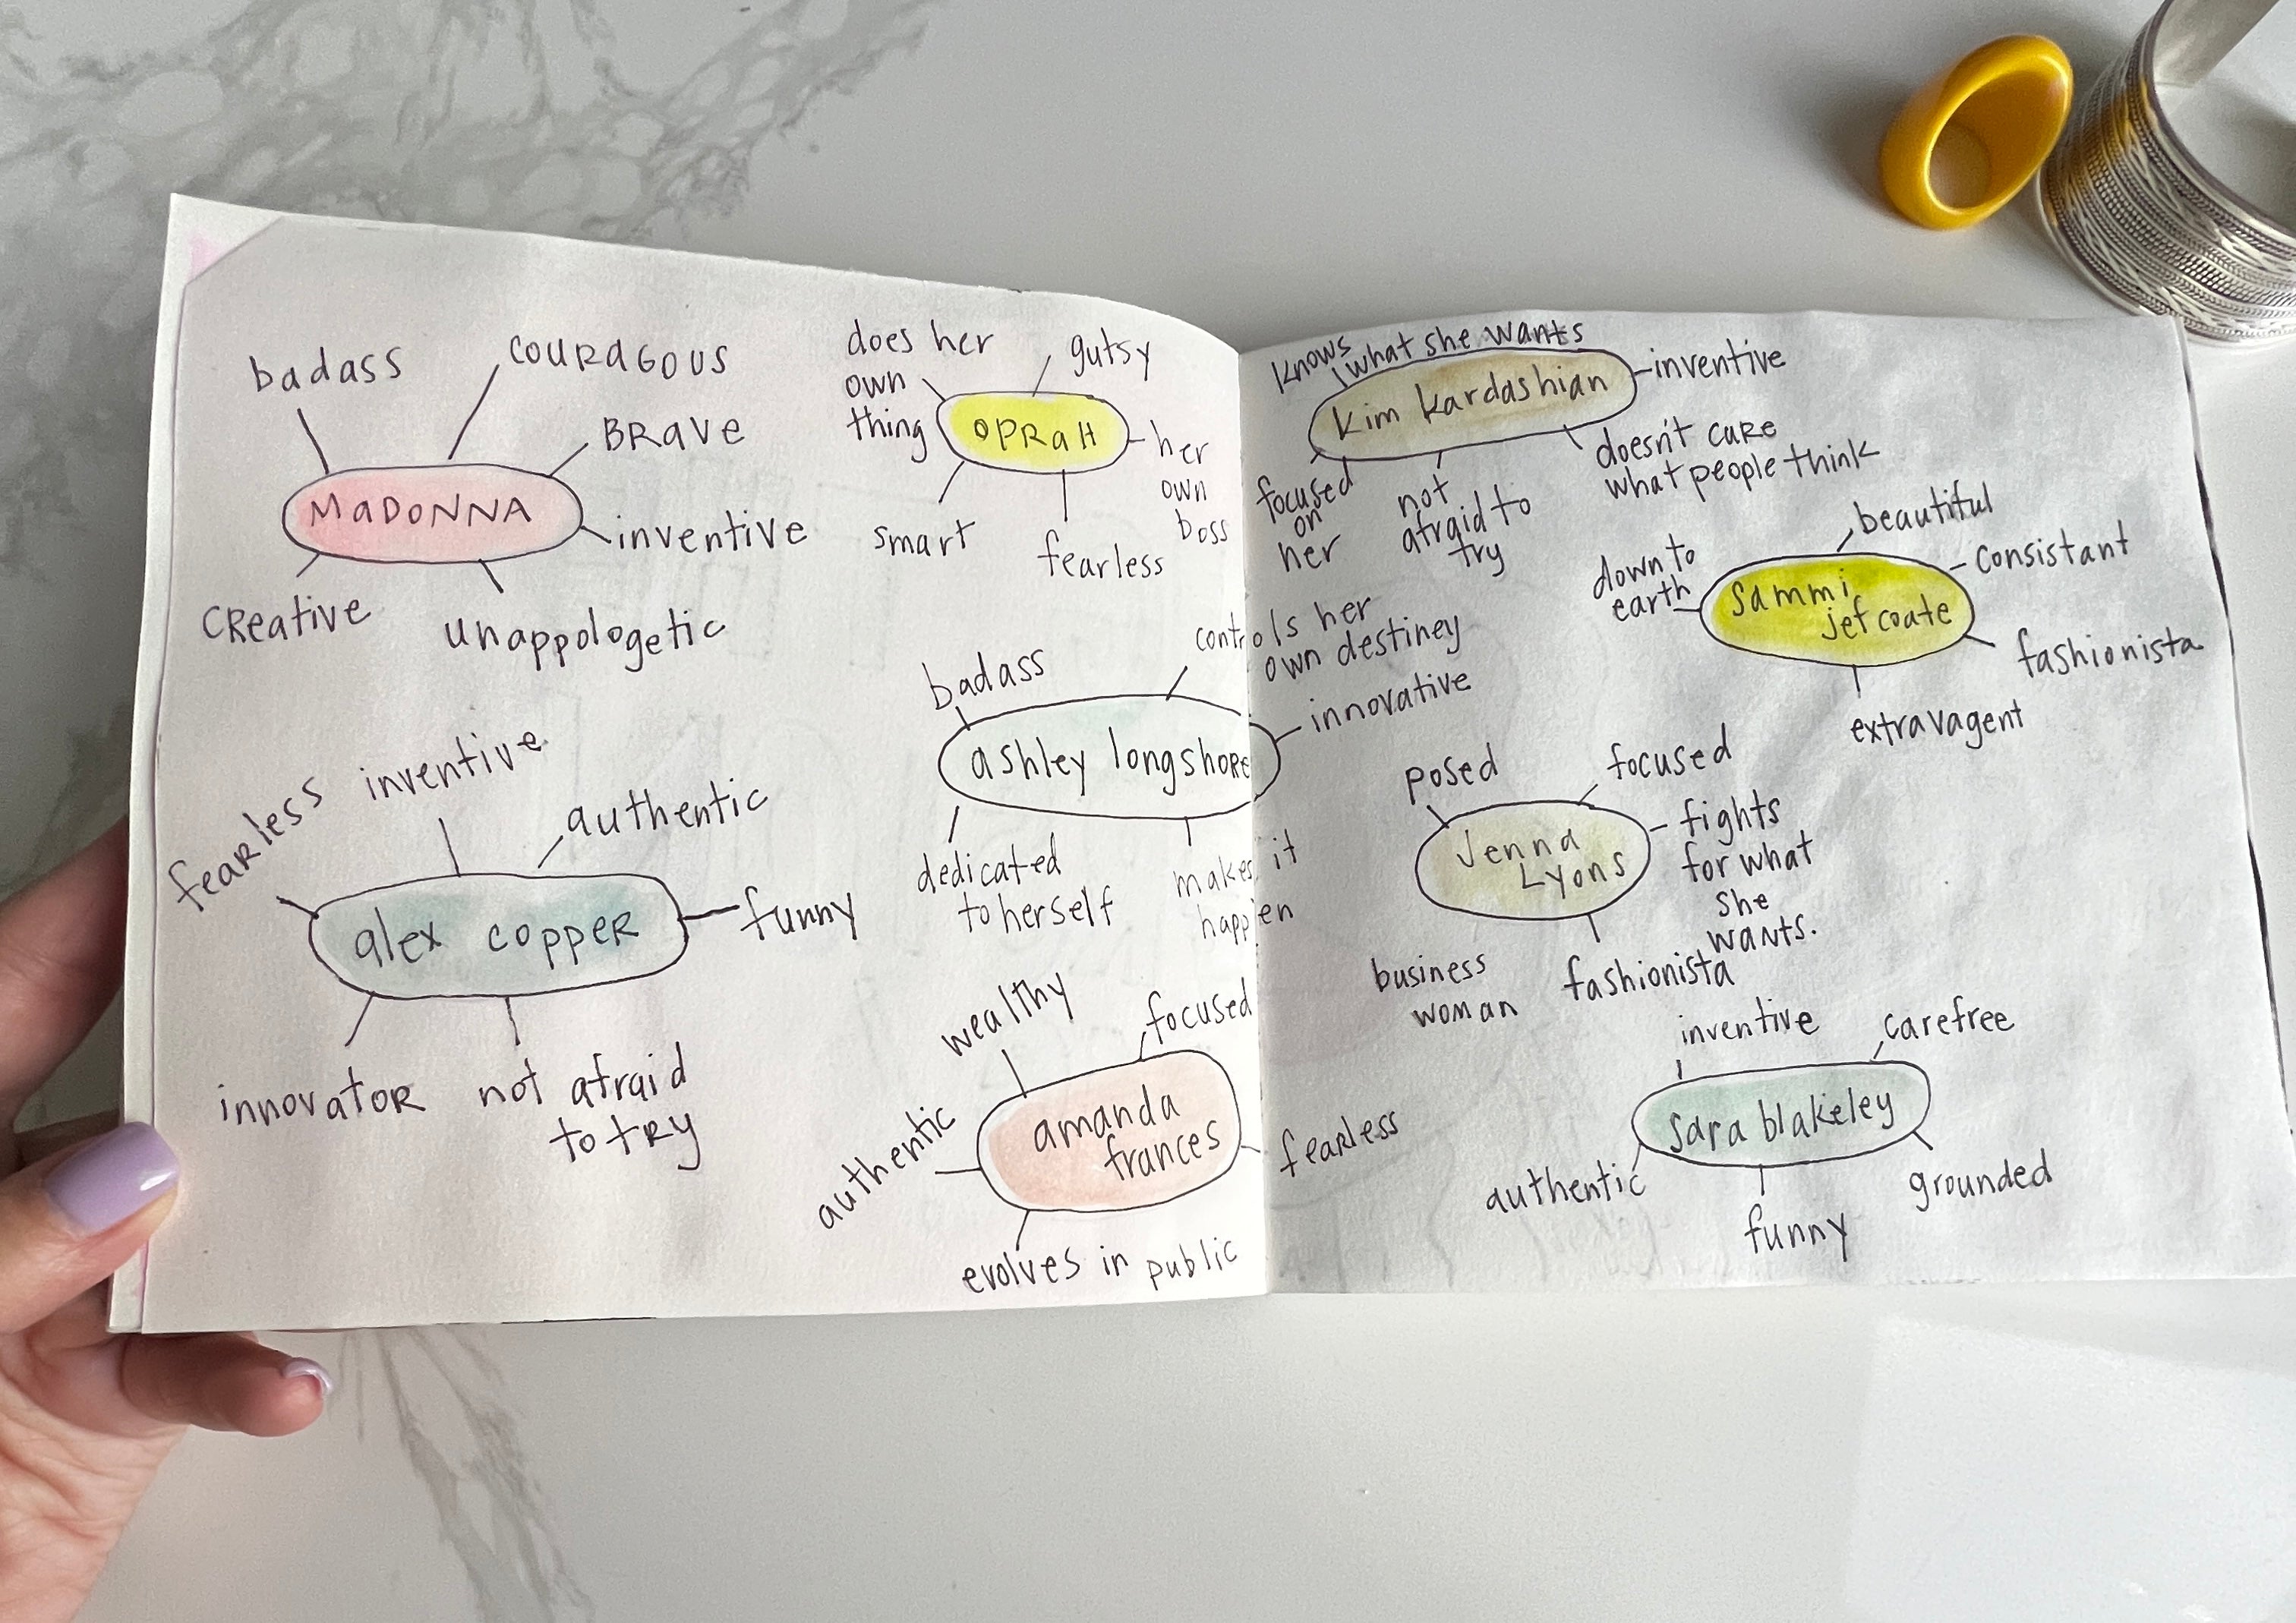 badass
couragous
BRave
MaDONNA
inventive
CReative
unappologetic
does her
own
thing
gutsy
OPRaH
her
own
boss
smart
fearless
fearless
inventive
authentic
alex copper
funny
innovator
not afraid
to try
badass
controls her
own destiney
innovative
ashley longshore
dedicated
to herself
makes it
happen
wealthy
focused
authentic
amanda
frances
fearless
evolves in public
knows what she wants
kim kardashian
inventive
doesn't care
what people think
focused
on
her
not
afraid to
try
beautiful
down to
earth
consistant
sammi
jefcoate
fashionista
extravagent
posed
focused
Jenna
Lyons
fights
for what
she
wants.
business
woman
fashionista
inventive
carefree
sara blakeley
authentic
funny
grounded